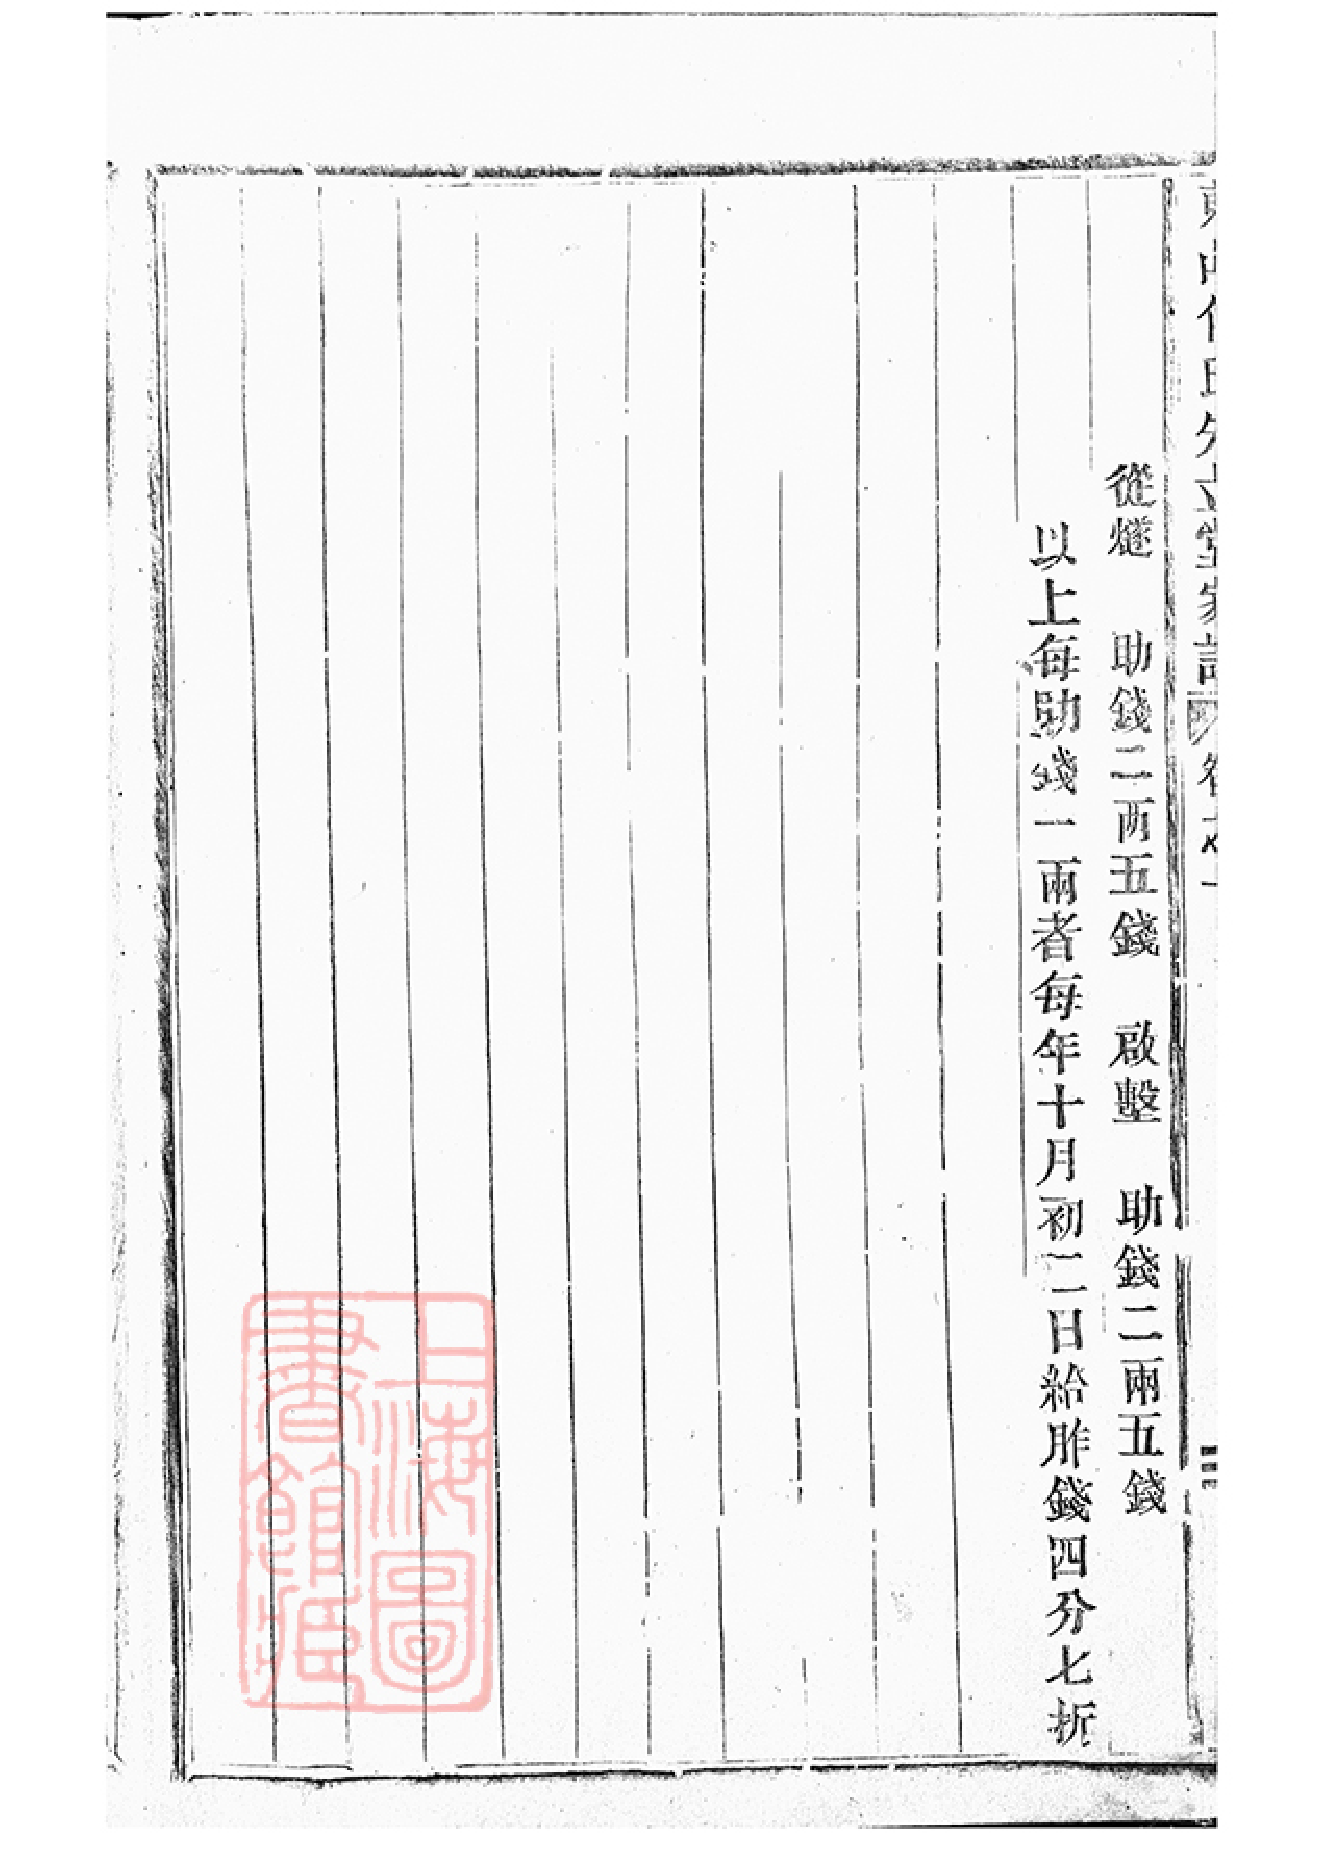 從燧 助錢二两五錢 啟鑿 助錢二兩五錢
以上每助錢一兩者每年十月初二日給胙錢四分七折
上海圖書館藏